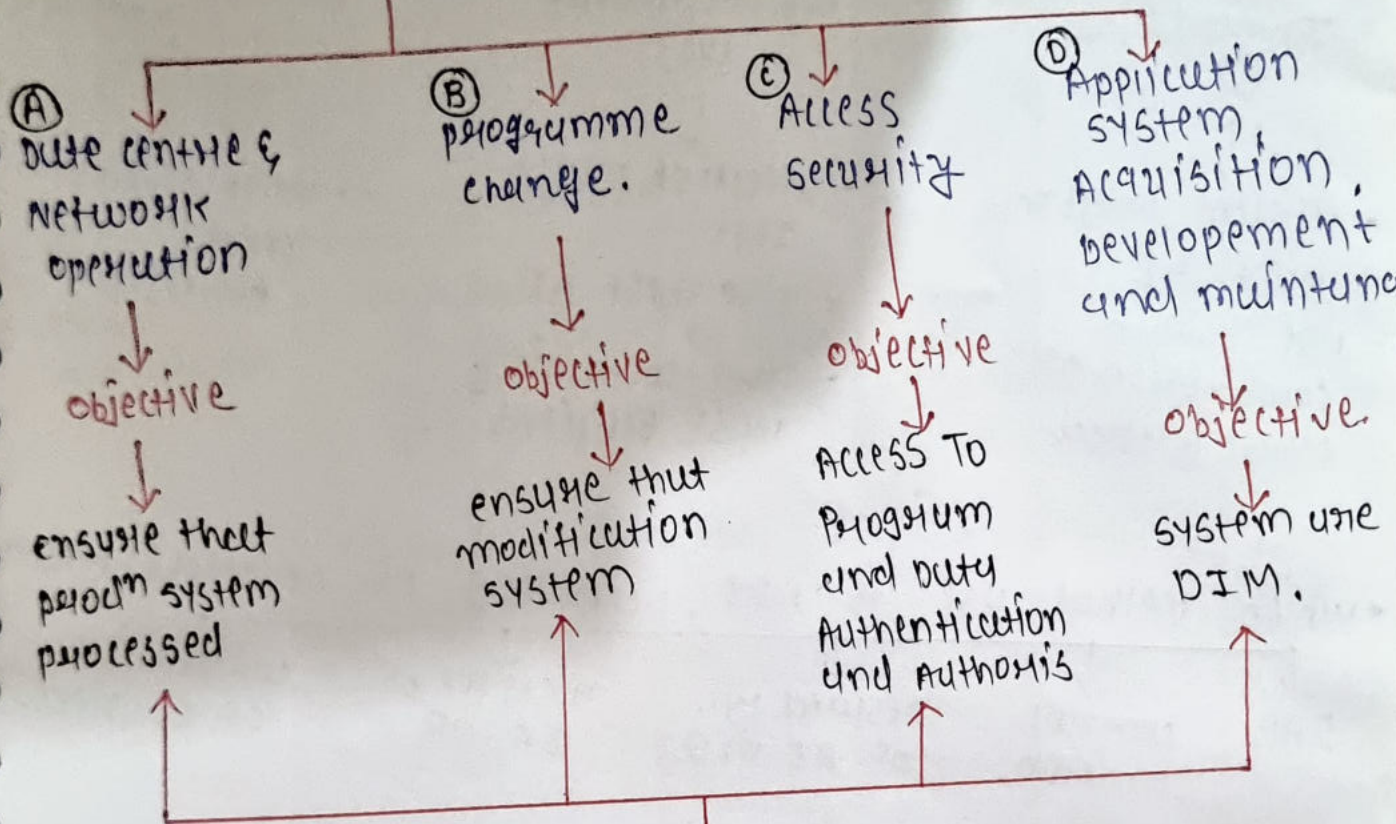 A
Data centre &
Network
operation
objective
ensure that
prodn system
processed
B
programme
change.
objective
ensure that
modification
system
C
Access
security
objective
Access To
Program
and Data
Authentication
and Authoris
D
Application
system,
Acquisition,
Developement
and maintanc
objective.
system are
DIM.